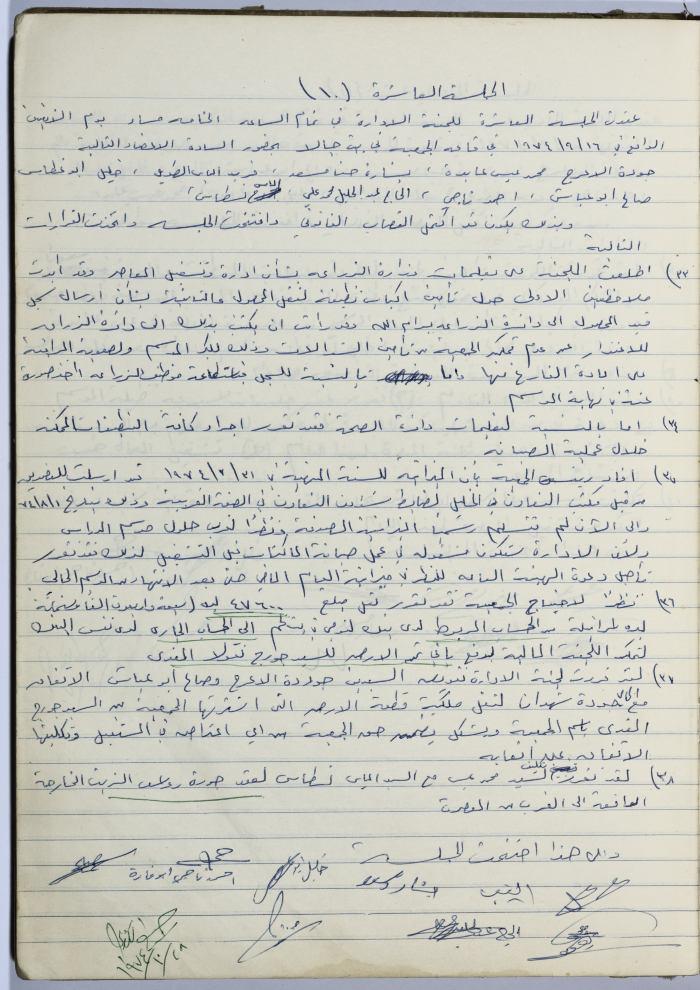 الجلسة العاشرة (١٠)
عقدت الجلسة العاشرة للجنة الادارة في تمام الساعة الخامسة مساء يوم الاثنين
الواقع في ١٩٧٤/٩/١٦ في قاعة الجمعية في بيت جالا بحضور السادة الاعضاء التالية
جودة الاعرج، محمد عيسى عابدة، بشارة حنا مسعد، فريد الطويل، خليل ابو غطاس
صالح ابو عباش، احمد ناجي، الحاج عبد الجليل محمد علي، الياس غطاس،
وبذلك يكون قد اكتمل النصاب القانوني وافتتحت الجلسة واتخذت القرارات
التالية
٣٣) اطلعت اللجنة على تعليمات وزارة الزراعة بشأن ادارة وتشغيل المعاصر وقد أبدت
ملاحظتين الاولى حول تأمين اكياس نظيفة لنقل المحصول والثانية بشأن ارسال سجل
قيد المحصول الى دائرة الزراعة برام الله وقد رأت ان يكتب بذلك الى دائرة الزراعة
للاعتذار عن عدم تمكن الجمعية من تأمين الشوالات وذلك لكبر الموسم ولصعوبة المراقبة
على المادة الفارغ منها واما بالنسبة للسجل موظف الزراعة أخذ صورة
عنه في نهاية الموسم
٣٤) اما بالنسبة لتعليمات دائرة الصحة فقد تقرر اجراء كافة التنظيفات الممكنة
خلال عملية الصيانة
٣٥) افاد رئيس الجمعية بأن الميزانية للسنة المنتهية في ١٩٧٤/٣/٣١ قد ارسلت للتصديق
من قبل مكتب التعاون في الخليل لضابط شئون التعاون في الضفة الغربية وذلك بتاريخ ٧٤/٨/١
والى الآن لم نتسلم رسميا الميزانية المصدقة ونظرا لقرب حلول موسم الدراس
ولأن الادارة ستكون مشغولة في عمل صيانة الماكنات قبل التشغيل لذلك فقد تقرر
تأجيل دعوة الهيئة العامة للنظر في ميزانية العام الماضي حتى بعد الانتهاء من الموسم الحالي
٣٦) نظرا لاحتياج الجمعية فقد تقرر نقل مبلغ ٤٧٦٠٠ ليرة (سبعة واربعون الفا وستمائة
ليرة اسرائيلية من الحساب المربوط لدى بنك لئومي في بيت لحم الى الحساب الجاري لدى نفس البنك
لتمكن اللجنة المالية لدفع باقي ثمن الارض للسيد جورج نقولا الفندي
٣٧) لقد قررت لجنة الادارة تفويض السيدين جودة الاعرج وصالح ابو عباش الاتفاق
مع المحامي جودة شهوان لنقل ملكية قطعة الارض التي اشترتها الجمعية من السيد جورج
الفندي باسم الجمعية وبشكل يضمن حق الجمعية من اي اعتراض في المستقبل وتكليفها
الاتفاق على اتعابه
٣٨) لقد تقرر تكليف السيد محمد عيسى مع السيد الياس غطاس لعقد جورة زيت الخارجة
الواقعة الى الغرب من المعصرة
والى هذا اختتمت الجلسة
خليل
احمد ناجي ابو فارة
النقيب
بشارة مسعد
الحاج عبد الجليل
١٩٧٤/١٠/٢٨